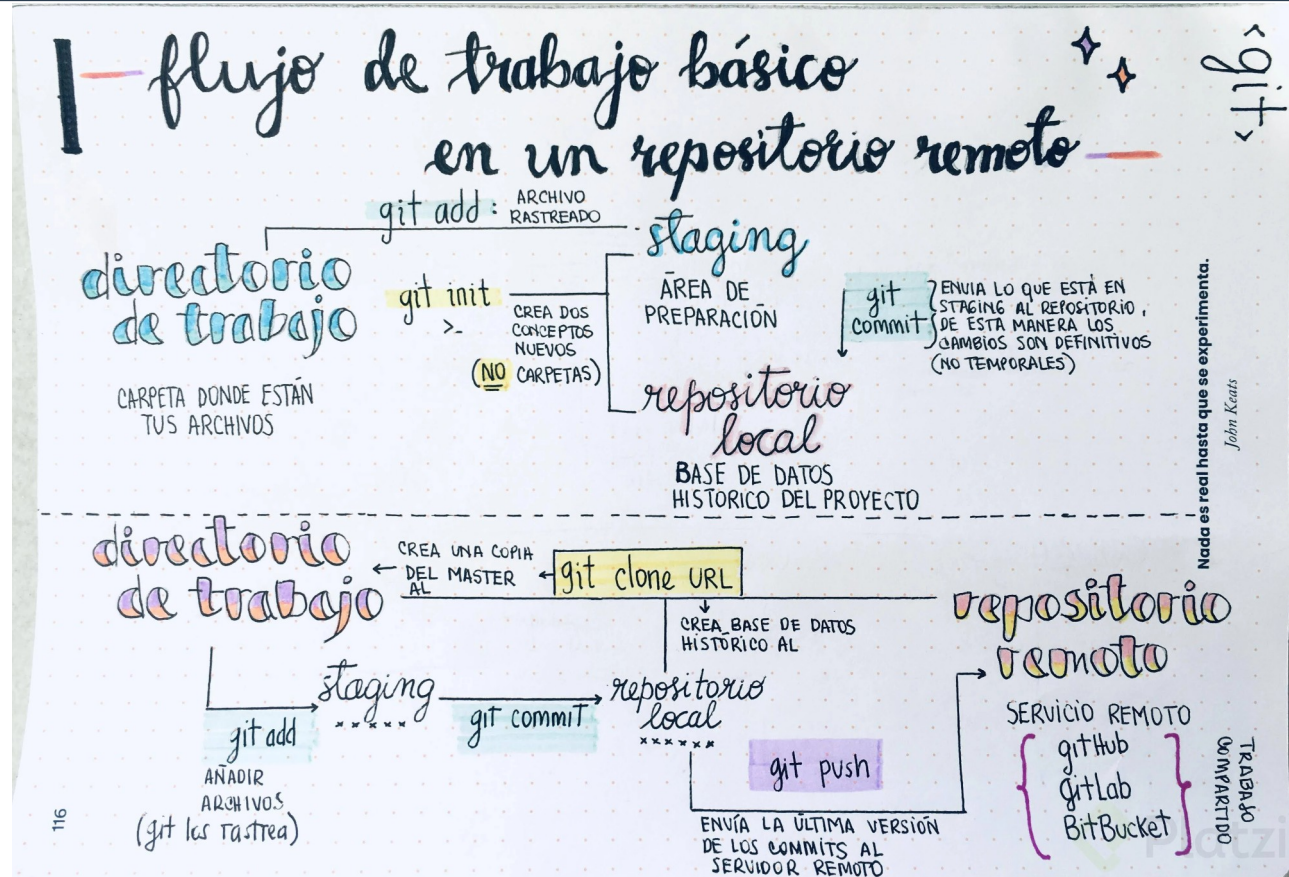 flujo de trabajo básico
en un repositorio remoto
<git>
git add: ARCHIVO
RASTREADO
directorio
de trabajo
CARPETA DONDE ESTÁN
TUS ARCHIVOS
git init
>_
CREA DOS
CONCEPTOS
NUEVOS
(NO CARPETAS)
staging
ÁREA DE
PREPARACIÓN
git
commit
ENVIA LO QUE ESTÁ EN
STAGING AL REPOSITORIO,
DE ESTA MANERA LOS
CAMBIOS SON DEFINITIVOS
(NO TEMPORALES)
repositorio
local
BASE DE DATOS
HISTORICO DEL PROYECTO
Nada es real hasta que se experimenta.
John Keats
directorio
de trabajo
CREA UNA COPIA
DEL MASTER
AL
git clone URL
CREA BASE DE DATOS
HISTÓRICO AL
repositorio
remoto
SERVICIO REMOTO
gitHub
gitLab
BitBucket
TRABAJO
COMPARTIDO
staging
git add
AÑADIR
ARCHIVOS
(git los rastrea)
git commit
repositorio
local
git push
ENVÍA LA ÚLTIMA VERSIÓN
DE LOS COMMITS AL
SERVIDOR REMOTO
116
Platzi